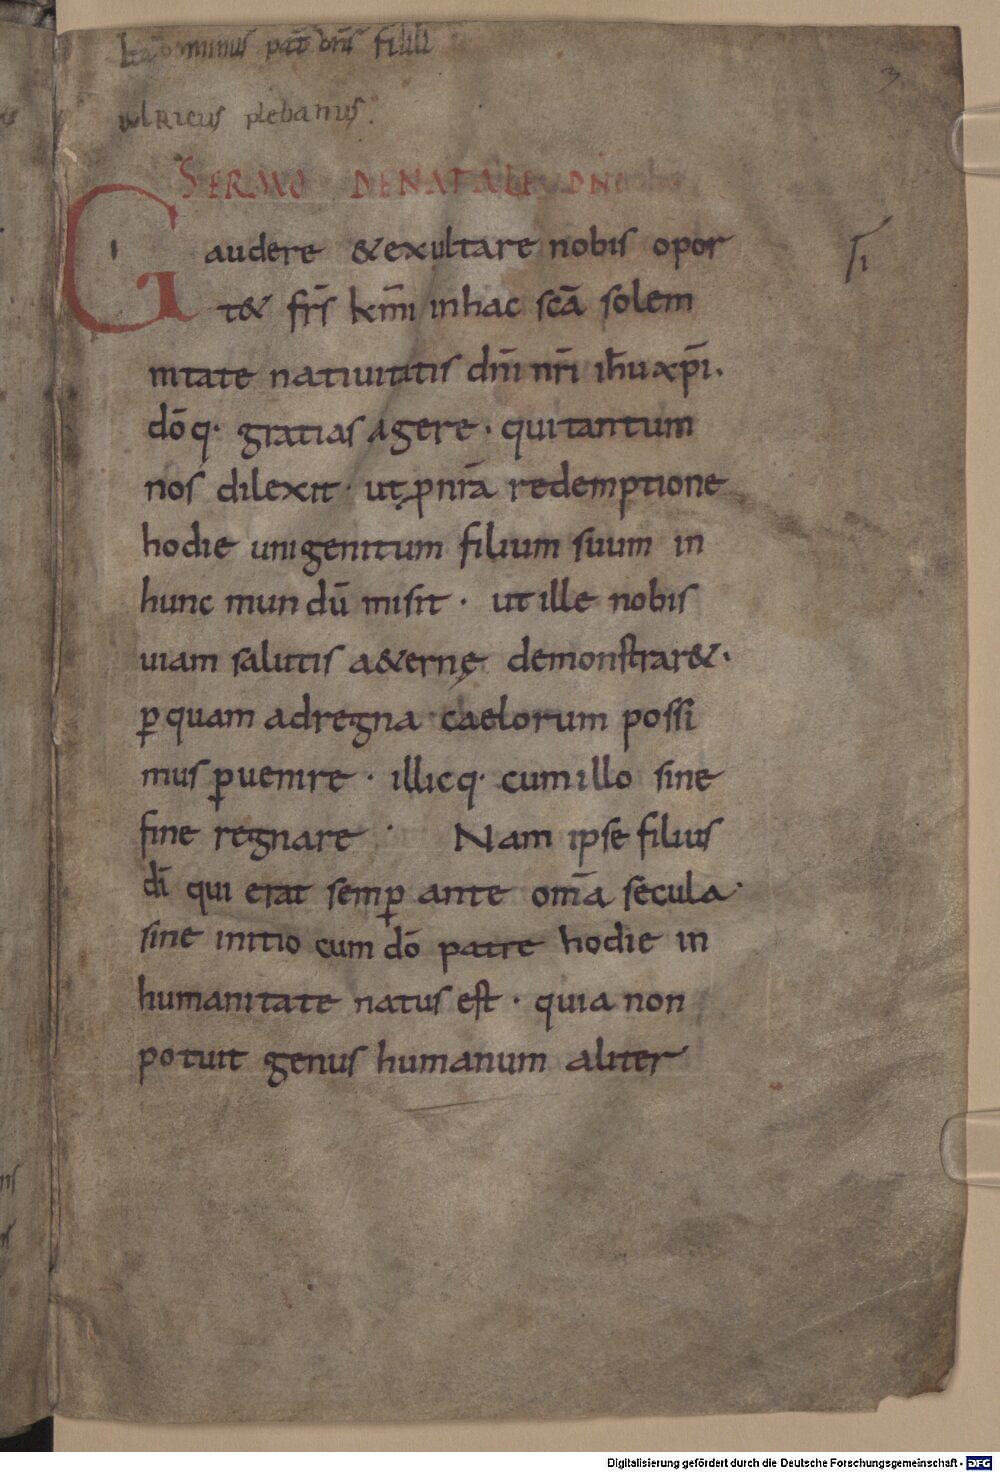 dominus pat̄ dn̄s filiu
3
ulricus plebanus.
SERMO DE NATALE DNI
Gaudere & exultare nobis opor
t& fr̄s km̄i in hac sc̄a solem
nitate natiuitatis dn̄i nr̄i ih̄u xp̄i.
dō q· gratias agere · qui tantum
nos dilexit · ut ꝑ nr̄a redemptione
hodie unigenitum filium suum in
hunc mundū misit · ut ille nobis
uiam salutis a&ernę demonstrar& ·
ꝑ quam ad regna caelorum possi
mus ꝑuenire · illicq· cum illo sine
fine regnare · Nam ipse filius
dī qui erat semꝑ ante om̄a secula ·
sine initio cum dō patre hodie in
humanitate natus est · quia non
potuit genus humanum aliter
Digitalisierung gefördert durch die Deutsche Forschungsgemeinschaft - DFG